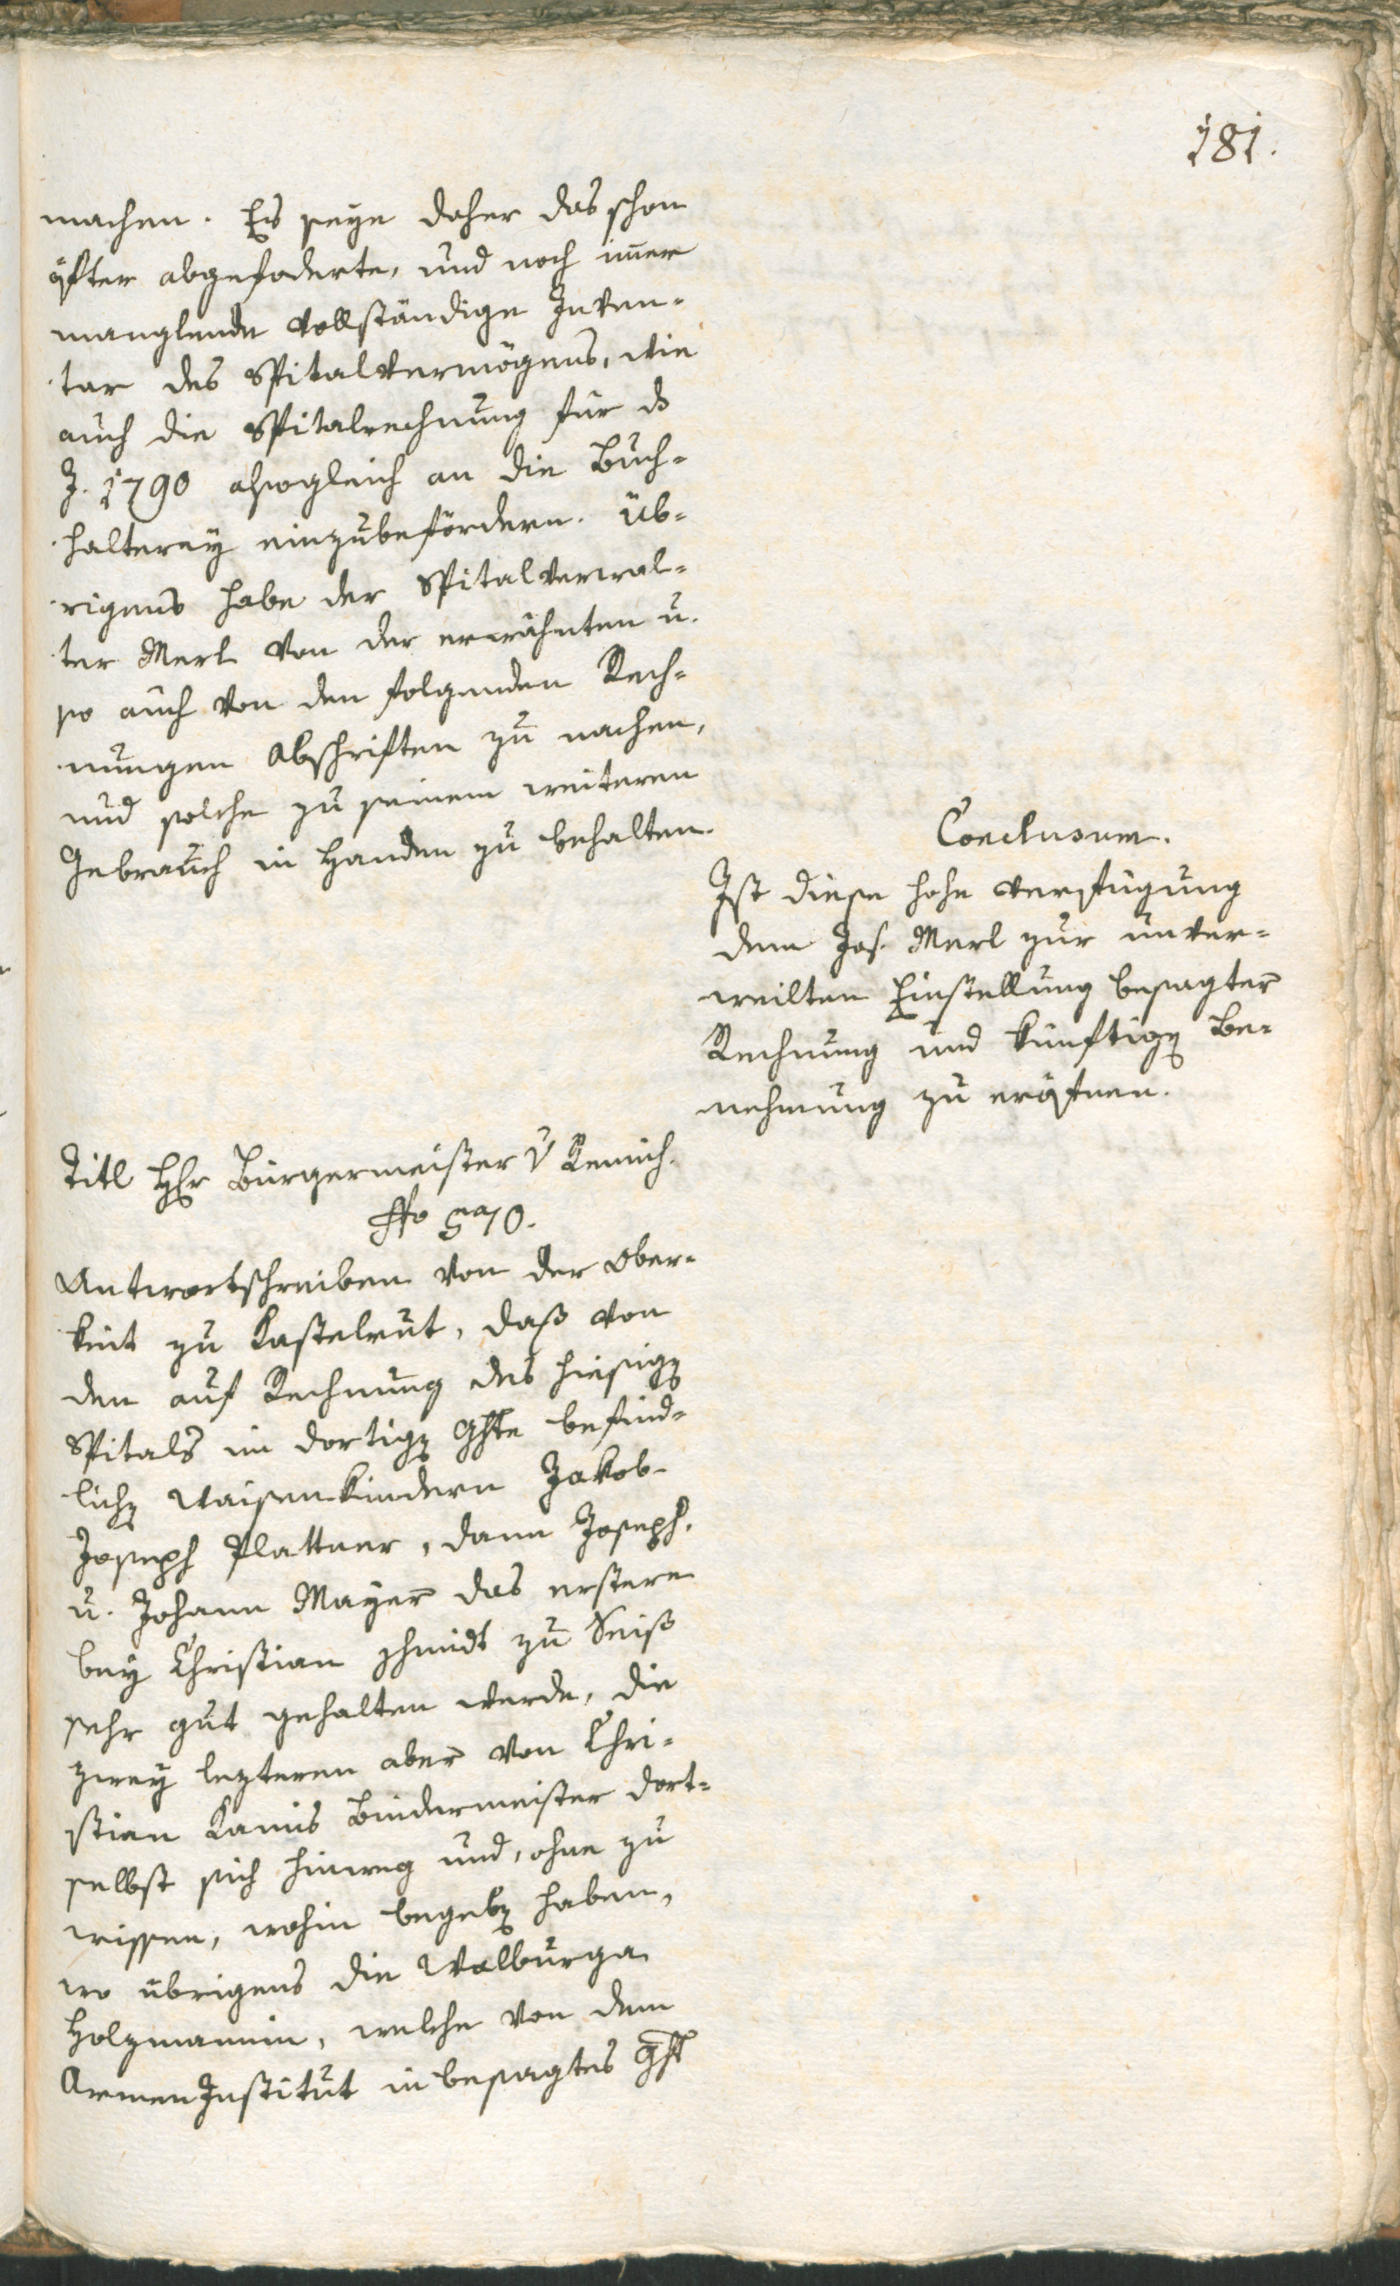 181.
machen. Es seye daher das schon
öfter abgefoderte, und noch im̅er
manglende vollständige Inven-
tar des Spitalvermögens, wie
auch die Spitalrechnung für d
J. 1790 alsogleich an die Buch-
halterey einzubefördern. Üb-
rigens habe der Spitalverwal-
ter Merl von der erwähnten u.
so auch von den folgenden Rech-
nungen Abschriften zu machen,
und solche zu seinem weiteren
Gebrauch in Handen zu behalten.
Conclusum.
Ist diese hohe Verfügung
dem Jos. Merl zur unver-
weilten Einstellung besagter
Rechnung und künftigen Be-
nehmung zu eröfnen.
Titl Hr Bürgermeister v Remich.
Antwortschreiben von der Ober-
keit zu Kastelrut, daß von
den auf Rechnung des hiesigen
Spitals im dortigen Ghte befind-
lichen Waisenkindern Jakob
Joseph Plattner, dann Joseph,
u. Johann Mayer das erstere
bey Christian Schmidt zu Seiß
sehr gut gehalten werde, die
zwey lezteren aber von Chri-
stian Kamis Bindermeister dort-
selbst sich hinweg und, ohne zu
wissen, wohin begeben haben,
wo übrigens die Walburga
Holzmannin, welche von dem
Armen Institut in besagtes Ght